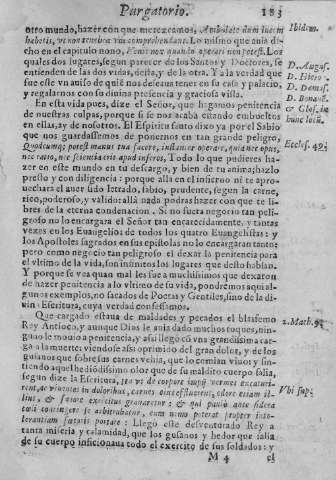 Purgatorio. 183
otro mundo, hazer con que merezcamos, Ambulate dum lucem
habetis, vt non tenebræ vos comprehendant. Lo mismo que auia di-
cho en el capitulo nono, Venit nox quando nemo operari potest. Los
quales dos lugares, segun parecer de los Santos y Doctores, se
entienden de las dos vidas, desta, y de la otra. Y a la verdad que
fue esse vn auiso de quié nos dessea tener en su casa y palacio,
y regalarnos con su diuina presencia y graciosa vista.
En esta vida pues, dize el Señor, que hagamos penitencia
de nuestras culpas, porque si se nos acaba citando embueltos
en ellas, ay de nosotros. El Espiritu santo dixo ya por el Sabio
que nos guardassemos de ponernos en tan grande peligro,
Quodcumq; potest manus tua facere, instanter operare, quia nec opus,
nec ratio, nec scientia erit apud inferos, Todo lo que pudieres ha-
zer en este mundo en tu descargo, y bien de tu anima; hazlo
presto y con diligencia: porque alla en el infierno ni te apro-
uechara el auer sido letrado, sabio, prudente, segun la carne,
rico, poderoso, y valido: allà nada podras hazer con que te li-
bres de la eterna condenacion. Si no fuera negocio tan peli-
groso no lo encargara el Señor tan encarecidamente, y tantas
vezes en los Euangelios de todos los quatro Euangelistas: y
los Apostoles sagrados en sus epistolas no lo encargaran tanto:
pero como negocio tan peligroso el dexar la penitencia para
el vltimo de la vida, son infinitos los lugares que desto hablan.
Y porque se vea quan mal les fue a muchissimos que dexaron
de hazer penitencia a lo vltimo de su vida, pondremos aqui al-
gunos exemplos, no sacados de Poetas y Gentiles, sino de la di-
uina Escritura, cuya verdad confessamos.
Que cargado estaua de maldades y pecados el blasfemo
Rey Antioco, y aunque Dios le auia dado muchos toques, nin-
guno le mouio a penitencia, y assi llegò cō vna grandissima car-
ga a la muerte: viendose assi oprimido del gran dolor, y de los
gusanos que sobre su carnes vehia, que lo comian viuo; y sin-
tiendo aquel hediódissimo olor que de su maldito cuerpo salia,
segun dize la Escritura, ita vt de corpore impij vermes scaturi-
rent, ac viuentis in doloribus, carnes eius effluerent, odore etiam il-
lius, & fœtore exercitus grauaretur: & qui paulo ante sidera
cœli contingere se arbitrabatur, eum nemo poterat propter into-
lerantiam fœtoris portare: Llegò este desventurado Rey a
tanta miseria y calamidad, que los gusanos y hedor que salia
de su cuerpo inficionaua todo el exercito de sus soldados: y
M 4 el
Ibidem.
D. Augus.
D. Hiero.
D. Damas.
D. Bonauẽ.
& Glos. in
hunc locũ.
Eccles. 49.
2. Mach. 9.
Vbi sup.